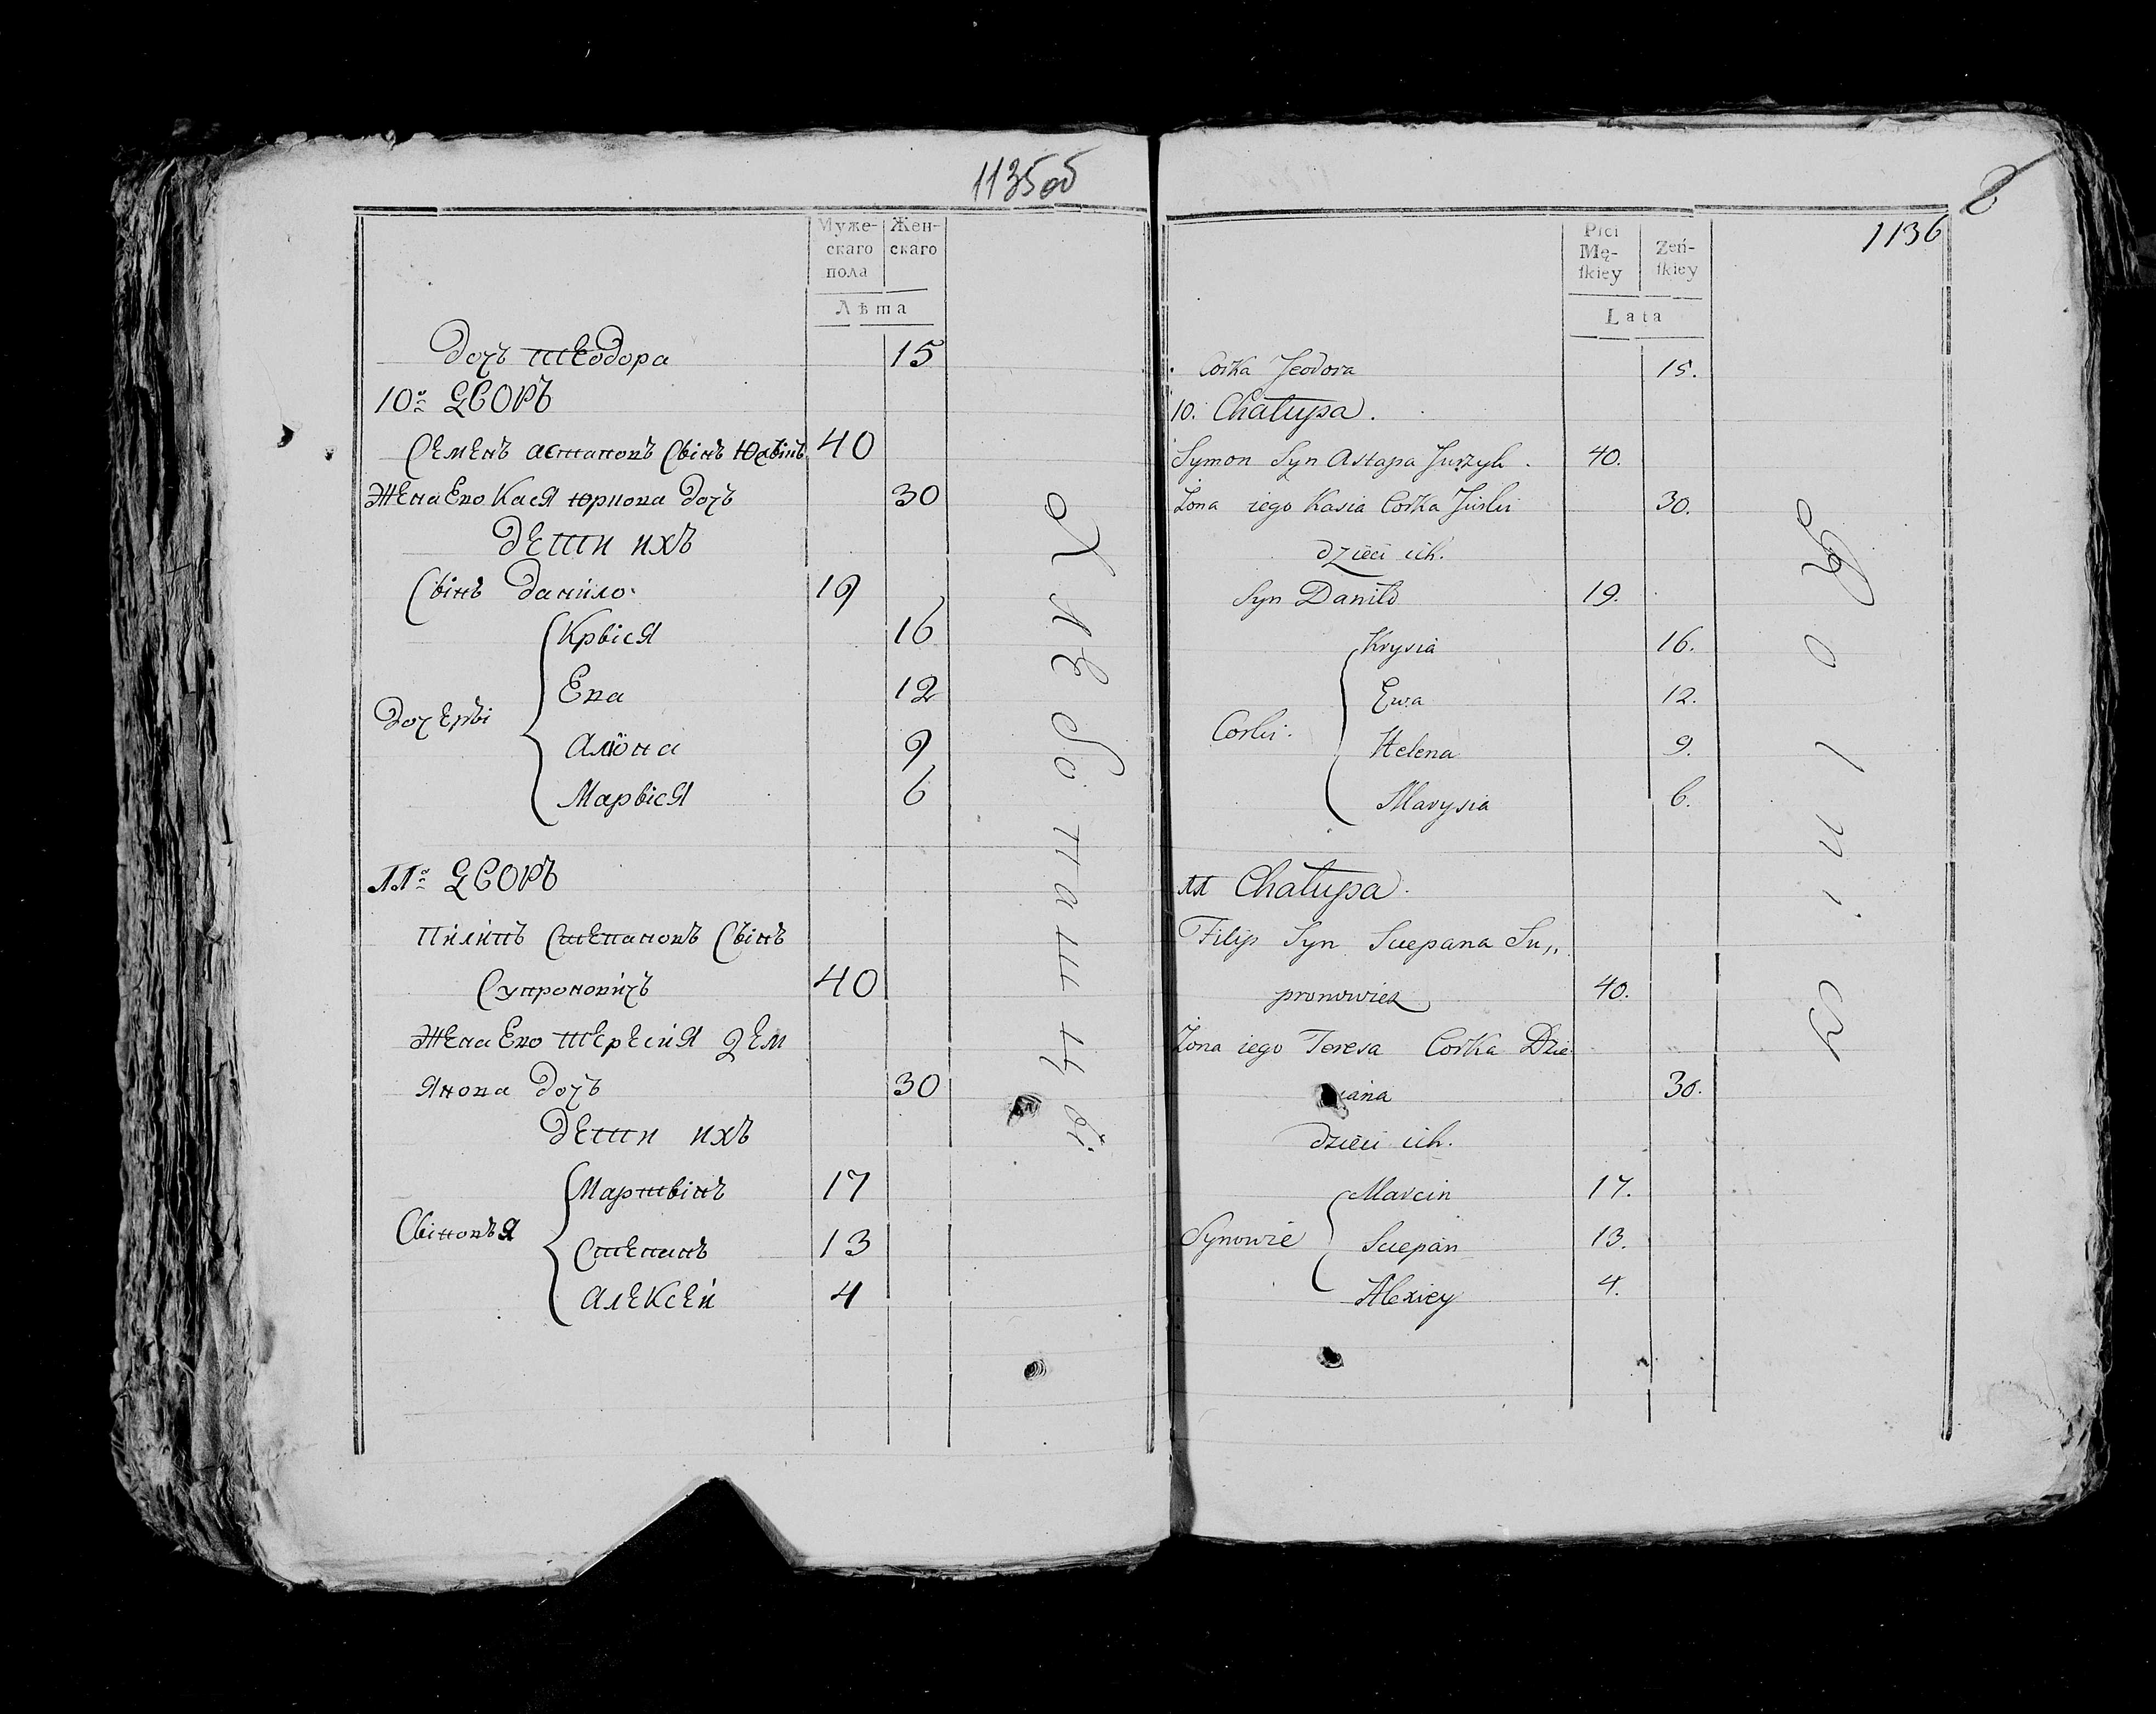 1135об
Муже-
скаго
пола
Жен-
скаго
Лѣта
Дочь Теодора 15
10й ДВОРЪ
Семенъ астаповъ Сынъ 40
Жена Его Кася юркова Дочь 30
ДЕТИ ИХЪ
Сынъ Данило 19
Дочеры
Крыся 16
Ева 12
Алюна 9
Марыся 6
11й ДВОРЪ
Пилипъ Степановъ Сынъ
Супроновичъ 40
Жена Его Тересия Дем
Янова Дочь 30
ДЕТИ ИХЪ
Сыновья
Мартынъ 17
Степанъ 13
Алексей 4
Хлебопашцы
8
1136
Płci
Mę-
ſkiey
Żeń-
ſkiey
Lata
Corka Teodora 15.
10. Chałupa.
Symon Syn Astapa 40.
Żona iego Kasia Corka Jurki 30.
dzieci ich.
Syn Daniło 19.
Corki.
Krysia 16.
Ewa 12.
Helena 9.
Marysia 6.
11 Chałupa.
Filip Syn Sciepana Su„
pronowicz 40.
Żona iego Teresa Corka Dzie
iana 30.
dzieci ich.
Synowie
Marcin 17.
Sciepan 13.
Alexiey 4.
Rolnicy